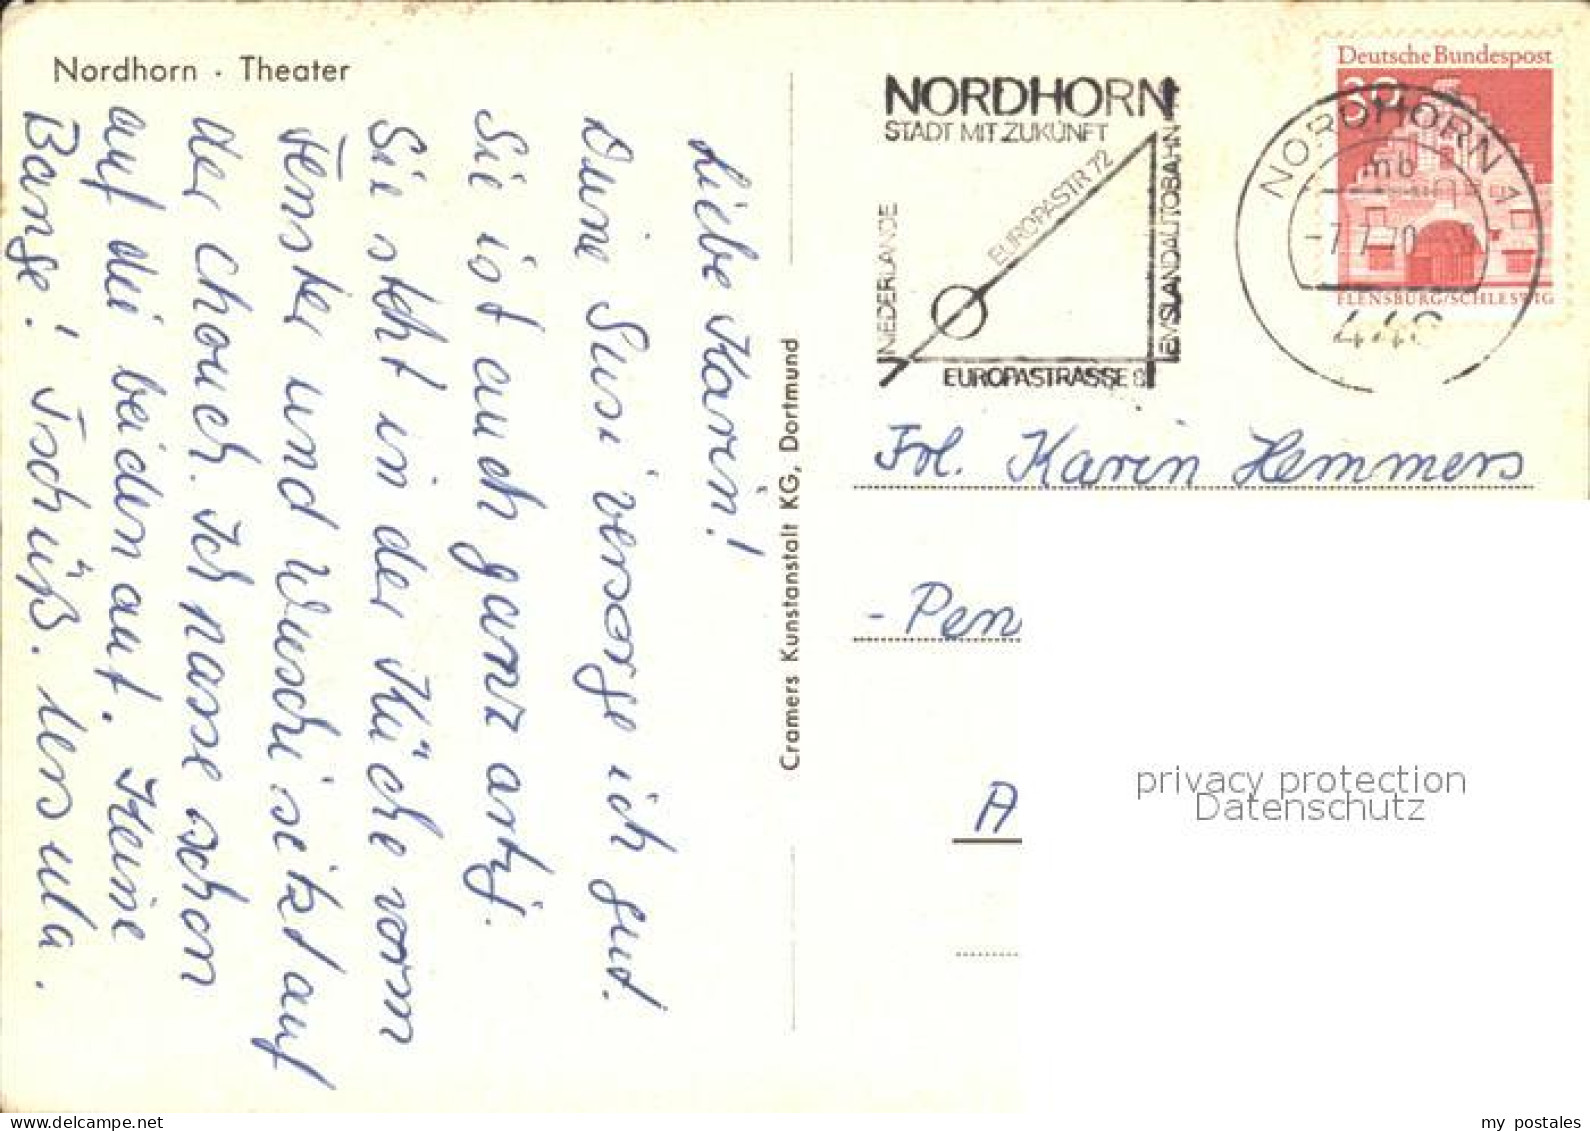 Nordhorn · Theater
Liebe Karin!
Deine Susi versorge ich gut.
Sie ist auch ganz artig.
Sie steht in der Küche vorm
Fenster und Wuschi sitzt auf
der Chouch. Ich passe schon
auf die beiden auf. Keine
Bange! Tschüß. Ursula.
Cramers Kunstanstalt KG, Dortmund
NORDHORN
STADT MIT ZUKUNFT
NIEDERLANDE
EUROPASTR 72
EMSLANDAUTOBAHN
EUROPASTRASSE 8
NORDHORN 1
mb
-7.7.70
448
Deutsche Bundespost
30
FLENSBURG/SCHLESWIG
Frl. Karin Hemmers
- Pen
A
privacy protection
Datenschutz
my postales